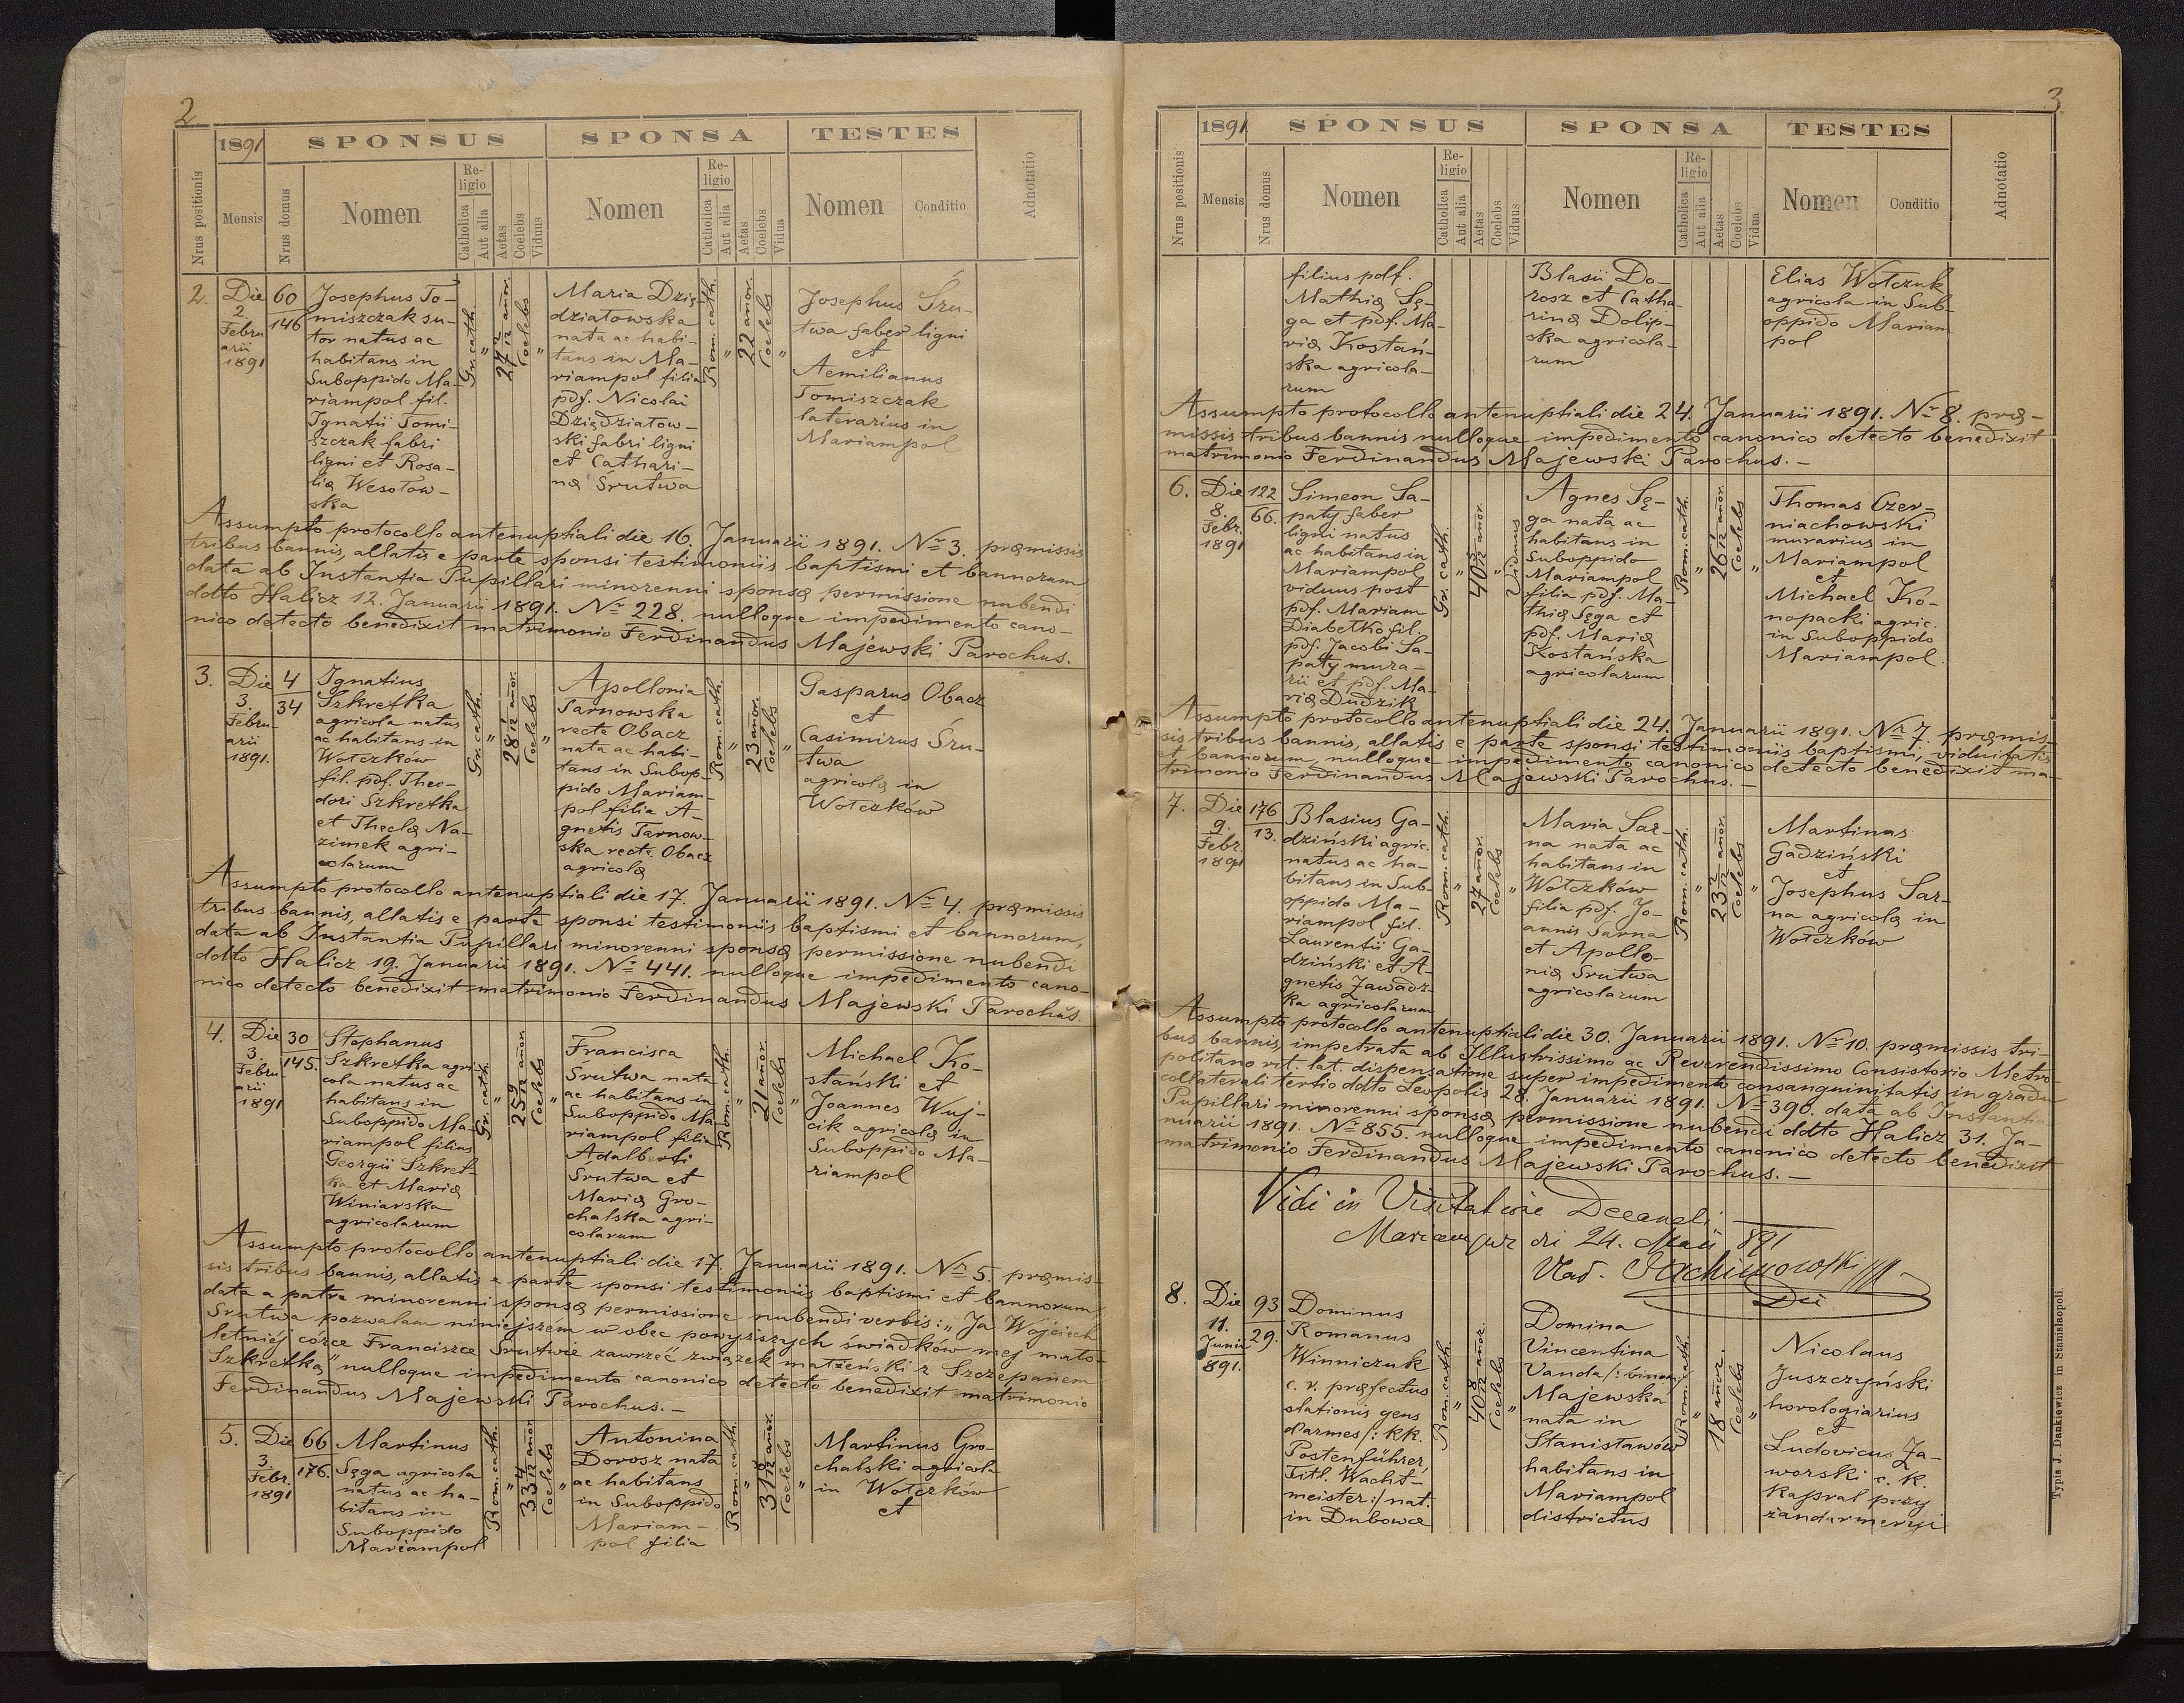 2.
1891
SPONSUS
SPONSA
TESTES
Nrus positionis
Mensis
Nrus domus
Nomen
Religio
Catholica
Aut alia
Aetas
Coelebs
Viduus
Nomen
Religio
Catholica
Aut alia
Aetas
Coelebs
Vidua
Nomen
Conditio
Adnotatio
2.
Die
2
Febru
arii
1891
60
146
Josephus To-
miszczak su-
tor natus ac
habitans in
Suboppido Ma-
riampol fil.
Ignatii Tomi-
szczak fabri
ligni et Rosa-
liæ Wesołow-
ska
Gr. cath.
"
27 2/12 añor.
Coelebs
"
Maria Dzię-
dziatowska
nata ac habi-
tans in Ma-
riampol filia
pdf. Nicolai
Dziędziatow-
ski fabri ligni
et Cathari-
næ Srutwa
Rom. cath.
"
22 añor.
Coelebs
"
Josephus Sru-
twa faber ligni
et
Aemilianus
Tomiszczak
laterarius in
Mariampol
Assumpto protocollo antenuptiali die 16. Januarii 1891. Nr 3. præmissis
tribus bannis, allatis e parte sponsi testimoniis baptismi et bannorum
data ab Instantia Pupillari minorenni sponsæ permissione nubendi
ddto Halicz 12. Januarii 1891. Nr 228. nulloque impedimento cano-
nico detecto benedixit matrimonio Ferdinandus Majewski Parochus.
3.
Die
3.
Febru-
arii
1891.
4
34
Ignatius
Szkretka
agricola natus
ac habitans in
Wołczków
fil. pdf. Theo-
dori Szkretka
et Theclæ Na-
zimek agri-
colarum
Gr. cath.
"
28 1/12 añor.
Coelebs
"
Apollonia
Tarnowska
recte Obacz
nata ac habi-
tans in Subop-
pido Mariam-
pol filia A-
gnetis Tarnow-
ska recte Obacz
agricolæ
Rom. cath.
"
23 añor.
Coelebs
"
Gasparus Obacz
et
Casimirus Sru-
twa
agricolæ in
Wołczków
Assumpto protocollo antenuptiali die 17. Januarii 1891. Nr 4. præmissis
tribus bannis, allatis e parte sponsi testimoniis baptismi et bannorum,
data ab Instantia Pupillari minorenni sponsæ permissione nubendi
ddto Halicz 19. Januarii 1891. Nr 441. nulloque impedimento cano-
nico detecto benedixit matrimonio Ferdinandus Majewski Parochus.
4.
Die
3.
Febru
arii
1891
30
145.
Stephanus
Szkretka agri
cola natus ac
habitans in
Suboppido Ma-
riampol filius
Georgii Szkret-
ka et Mariæ
Winiarska
agricolarum
Gr. cath.
"
25 9/12 añor.
Coelebs
"
Francisca
Srutwa nata
ac habitans in
Suboppido Ma
riampol filia
Adalberti
Srutwa et
Mariæ Gro-
chalska agri-
colarum
Rom. cath.
"
21 añor.
Coelebs
"
Michael Ko-
stański et
Joannes Wuj-
cik agricolæ in
Suboppido Ma-
riampol
Assumpto protocollo antenuptiali die 17. Januarii 1891. Nr 5. præmis-
sis tribus bannis, allatis e parte sponsi testimoniis baptismi et bannorum
data a patre minorenni sponsæ permissione nubendi verbis: „Ja Wojciech
Srutwa pozwalam niniejszem w obec powyższych świadków mej mało-
letniéj córce Franciszce Srutwie zawrzeć związek małżeński z Szczepanem
Szkretką" nulloque impedimento canonico detecto benedixit matrimonio
Ferdinandus Majewski Parochus. –
5.
Die
3.
Febr.
1891
66
176.
Martinus
Sęga agricola
natus ac ha-
bitans in
Suboppido
Mariampol
Rom. cath.
"
33 4/12 añor.
Coelebs
"
Antonina
Dorosz nata
ac habitans
in Suboppido
Mariam-
pol filia
Rom. cath.
"
31 8/12 añor.
Coelebs
"
Martinus Gro-
chalski agricola
in Wołczków
et
3
1891
SPONSUS
SPONSA
TESTES
Nrus positionis
Mensis
Nrus domus
Nomen
Religio
Catholica
Aut alia
Aetas
Coelebs
Viduus
Nomen
Religio
Catholica
Aut alia
Aetas
Coelebs
Vidua
Nomen
Conditio
Adnotatio
filius pdf.
Mathiæ Sę-
ga et pdf. Ma-
riæ Kostań-
ska agricola-
rum
Blasii Do-
rosz et Catha-
rinæ Dolip-
ska agricola-
rum
Elias Wołczuk
agricola in Sub-
oppido Mariam
pol
Assumpto protocollo antenuptiali die 24. Januarii 1891. Nr 8. præ-
missis tribus bannis nulloque impedimento canonico detecto benedixit
matrimonio Ferdinandus Majewski Parochus. –
6.
Die
8.
Febr.
1891
122
66.
Simeon Sa-
paty faber
ligni natus
ac habitans in
Mariampol
viduus post
pdf. Mariam
Diabełko fil.
pdf. Jacobi Sa-
paty mura-
rii et pdf. Ma-
riæ Dudzik
Gr. cath.
"
40 5/12 añor.
"
Viduus
Agnes Sę-
ga nata ac
habitans in
Suboppido
Mariampol
filia pdf. Ma-
thiæ Sęga et
pdf. Mariæ
Kostańska
agricolarum
Rom. cath.
"
26 1/12 añor.
Coelebs
"
Thomas Czer-
niachowski
murarius in
Mariampol
et
Michael Ko-
nopacki agric.
in Suboppido
Mariampol.
Assumpto protocollo antenuptiali die 24. Januarii 1891. Nr 7. præmis-
sis tribus bannis, allatis e parte sponsi testimoniis baptismi, viduitatis
et bannorum, nulloque impedimento canonico detecto benedixit ma-
trimonio Ferdinandus Majewski Parochus. –
7.
Die
9.
Febr.
1891
176
13.
Blasius Ga-
dziński agric.
natus ac ha-
bitans in Sub-
oppido Ma-
riampol fil.
Laurentii Ga-
dziński et A-
gnetis Zawadz-
ka agricolarum
Rom. cath.
"
27 añor.
Coelebs
"
Maria Sar-
na nata ac
habitans in
Wołczków
filia pdf. Jo-
annis Sarna
et Apollo-
niæ Srutwa
agricolarum
Rom. cath.
"
23 2/12 añor.
Coelebs
"
Martinus
Gadziński
et
Josephus Sar-
na agricolæ in
Wołczków
Assumpto protocollo antenuptiali die 30. Januarii 1891. Nr 10. præmissis tri-
bus bannis, impetrata ab Illustrissimo ac Reverendissimo Consistorio Metro-
politano rit. lat. dispensatione super impedimento consanguinitatis in gradu
collaterali tertio ddto Leopolis 28. Januarii 1891. Nr 390. data ab Instantia
Pupillari minorenni sponsæ permissione nubendi ddto Halicz 31. Ja-
nuarii 1891. Nr 855. nulloque impedimento canonico detecto benedixit
matrimonio Ferdinandus Majewski Parochus. –
Vidi in Visitatione Decanali
di 24. Maii 891
Vlad. Jachimowski
8.
Die
11.
Junii
891.
93
29.
Dominus
Romanus
Winniczuk
c. r. præfectus
stationis gens
d'armes /: k.k.
Postenführer,
Titl. Wacht-
meister :/ nat.
in Dubowce
Rom. cath.
"
40 8/12 añor.
Coelebs
"
Domina
Vincentina
Vanda /: binom
Majewska
nata in
Stanisławów
habitans in
Mariampol
districtus
Rom. cath.
"
18 añor.
Coelebs
"
Nicolaus
Juszczyński
horologiarius
et
Ludovicus Ja-
worski c. k.
kapral przy
żandarmeryi
Typis J. Dankiewicz in Stanislaopoli.